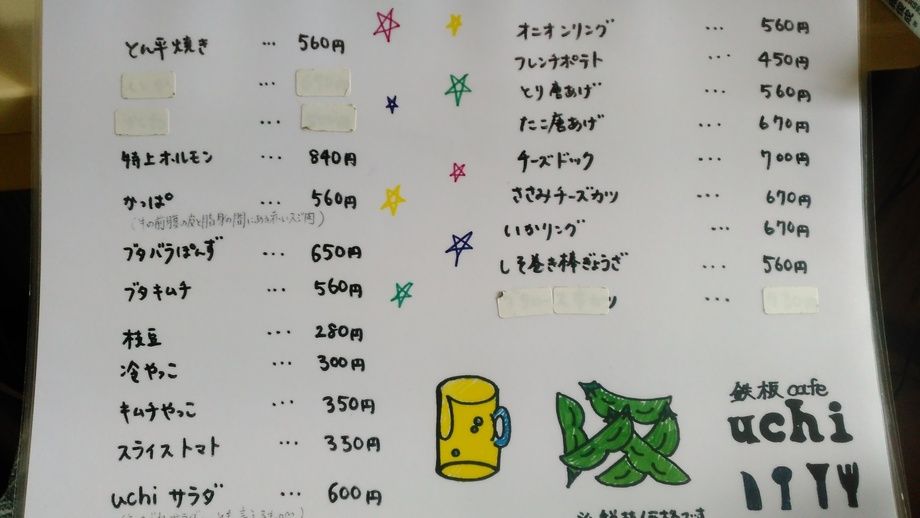 とん平焼き … 560円
特上ホルモン … 840円
かっぱ … 560円
ブタバラぽんず … 650円
ブタキムチ … 560円
枝豆 … 280円
冷やっこ … 300円
キムチやっこ … 350円
スライストマト … 350円
uchi サラダ … 600円
オニオンリング … 560円
フレンチポテト … 450円
とり唐あげ … 560円
たこ唐あげ … 670円
チーズドック … 700円
ささみチーズカツ … 670円
いかリング … 670円
しそ巻き棒ぎょうざ … 560円
鉄板 cafe
uchi